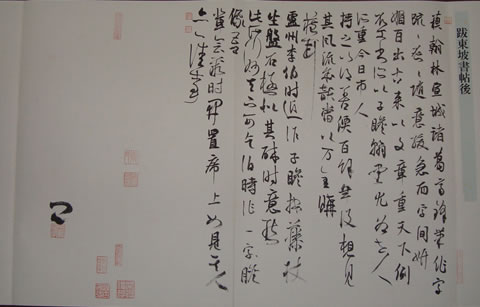 跋東坡書帖後
蘇翰林宣城諸葛齊鋒筆作字
疏疏密密隨意緩急而字間妍
媚百出古來以文章重天下例
不工書所以子瞻翰墨尤為世人
所重今日市人
持之以得善價百餘年後想見
其風流餘韻當以万金購
藏耳
廬州李伯時近作子瞻按藤杖
坐盤石極似其醉時意態
此紙妙天下可乞伯時作一子瞻
像吾
輩會聚時開置席上如見其人
亦一佳事